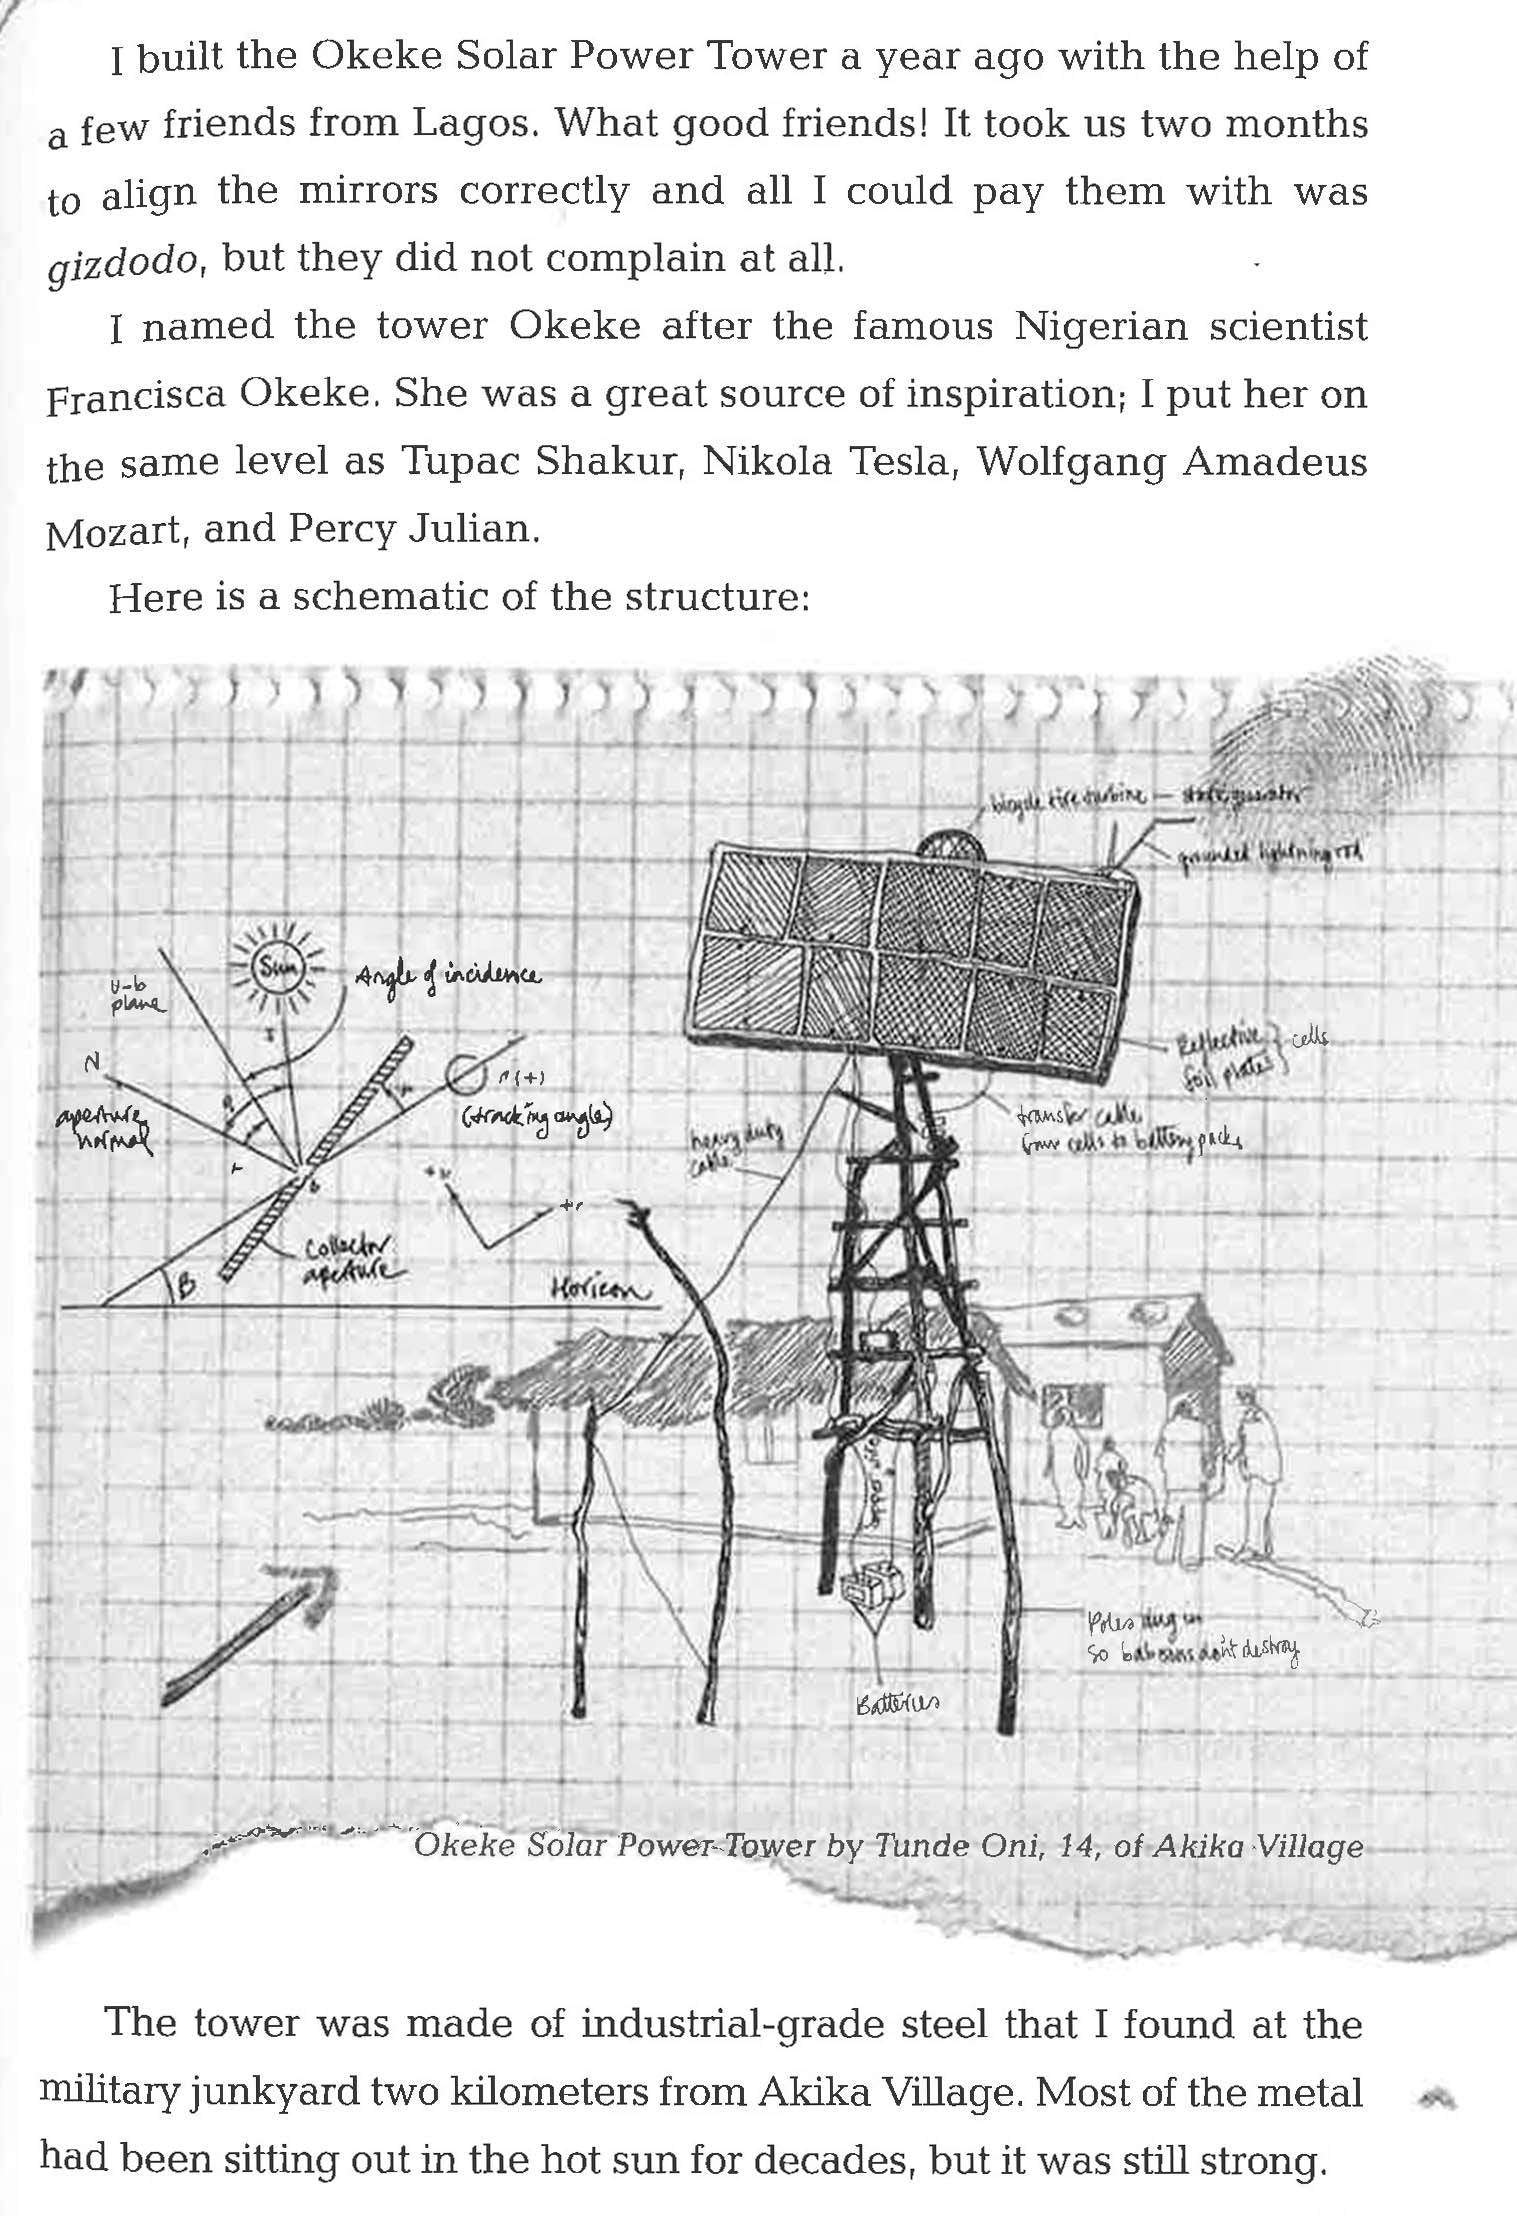 I built the Okeke Solar Power Tower a year ago with the help of
a few friends from Lagos. What good friends! It took us two months
to align the mirrors correctly and all I could pay them with was
gizdodo, but they did not complain at all.
I named the tower Okeke after the famous Nigerian scientist
Francisca Okeke. She was a great source of inspiration; I put her on
the same level as Tupac Shakur, Nikola Tesla, Wolfgang Amadeus
Mozart, and Percy Julian.
Here is a schematic of the structure:
bicycle tire turbine —
grounded lightning rod
Sun
Angle of incidence
u-b
plane
N
aperture
normal
r(+)
(tracking angle)
Reflective
foil plates } cells
transfer cable
from cells to battery packs
heavy duty
cable
+r
Collector
aperture
B
Horizon
Poles dug in
so baboons don't destroy
Batteries
Okeke Solar Power Tower by Tunde Oni, 14, of Akika Village
The tower was made of industrial-grade steel that I found at the
military junkyard two kilometers from Akika Village. Most of the metal
had been sitting out in the hot sun for decades, but it was still strong.